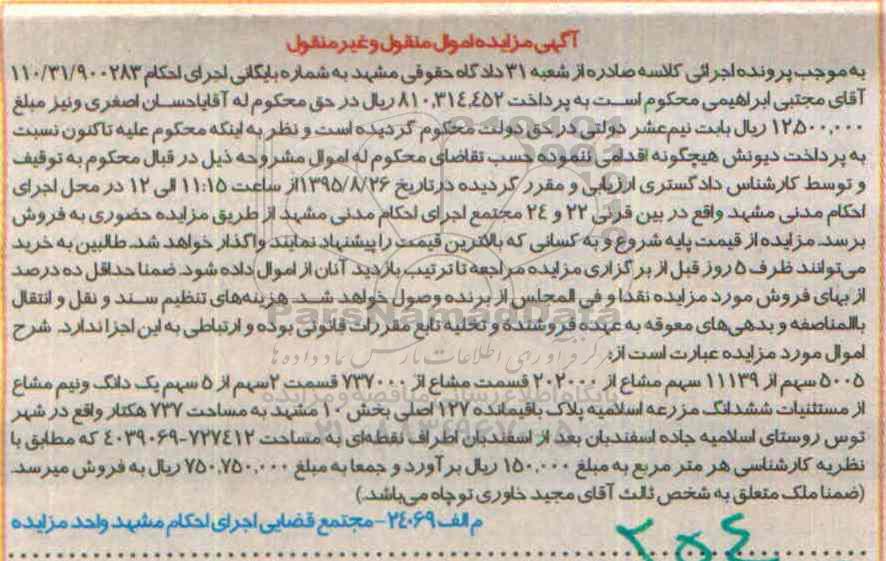 آگهی مزایده اموال منقول و غیر منقول
به موجب پرونده اجرائی کلاسه صادره از شعبه ۳۱ دادگاه حقوقی مشهد به شماره بایگانی اجرای احکام ۱۱۰/۳۱/۹۰۰۲۸۳
آقای مجتبی ابراهیمی محکوم است به پرداخت ۸۱۰,۳۱۴,۴۵۲ ریال در حق محکوم له آقایاحسان اصغری ونیز مبلغ
۱۲,۵۰۰,۰۰۰ ریال بابت نیم‌عشر دولتی در حق دولت محکوم گردیده است و نظر به اینکه محکوم علیه تاکنون نسبت
به پرداخت دیونش هیچگونه اقدامی ننموده حسب تقاضای محکوم له اموال مشروحه ذیل در قبال محکوم به توقیف
و توسط کارشناس دادگستری ارزیابی و مقرر گردیده درتاریخ ۱۳۹۵/۸/۲۶از ساعت ۱۱:۱۵ الی ۱۲ در محل اجرای
احکام مدنی مشهد واقع در بین قرنی ۲۲ و ۲۴ مجتمع اجرای احکام مدنی مشهد از طریق مزایده حضوری به فروش
برسد. مزایده از قیمت پایه شروع و به کسانی که بالاترین قیمت را پیشنهاد نمایند واگذار خواهد شد. طالبین به خرید
می‌توانند ظرف ۵ روز قبل از برگزاری مزایده مراجعه تا ترتیب بازدید آنان از اموال داده شود. ضمنا حداقل ده درصد
از بهای فروش مورد مزایده نقدا و فی المجلس از برنده وصول خواهد شد. هزینه‌های تنظیم سند و نقل و انتقال
باالمناصفه و بدهی‌های معوقه به عهده فروشنده و تخلیه تابع مقررات قانونی بوده و ارتباطی به این اجرا ندارد. شرح
اموال مورد مزایده عبارت است از:
۵۰۰۵ سهم از ۱۱۱۳۹ سهم مشاع از ۲۰۲۰۰۰ قسمت مشاع از ۷۳۷۰۰۰ قسمت ۲سهم از ۵ سهم یک دانگ ونیم مشاع
از مستثنیات ششدانگ مزرعه اسلامیه پلاک باقیمانده ۱۲۷ اصلی بخش ۱۰ مشهد به مساحت ۷۳۷ هکتار واقع در شهر
توس روستای اسلامیه جاده اسفندیان بعد از اسفندیان اطراف نقطه‌ای به مساحت ۷۲۷۴۱۲-۴۰۳۹۰۶۹ که مطابق با
نظریه کارشناسی هر متر مربع به مبلغ ۱۵۰,۰۰۰ ریال برآورد و جمعا به مبلغ ۷۵۰,۷۵۰,۰۰۰ ریال به فروش میرسد.
(ضمنا ملک متعلق به شخص ثالث آقای مجید خاوری توچاه می‌باشد.)
م الف ۲۴۰۶۹-مجتمع قضایی اجرای احکام مشهد واحد مزایده
ParsNamadData
۲۵۴